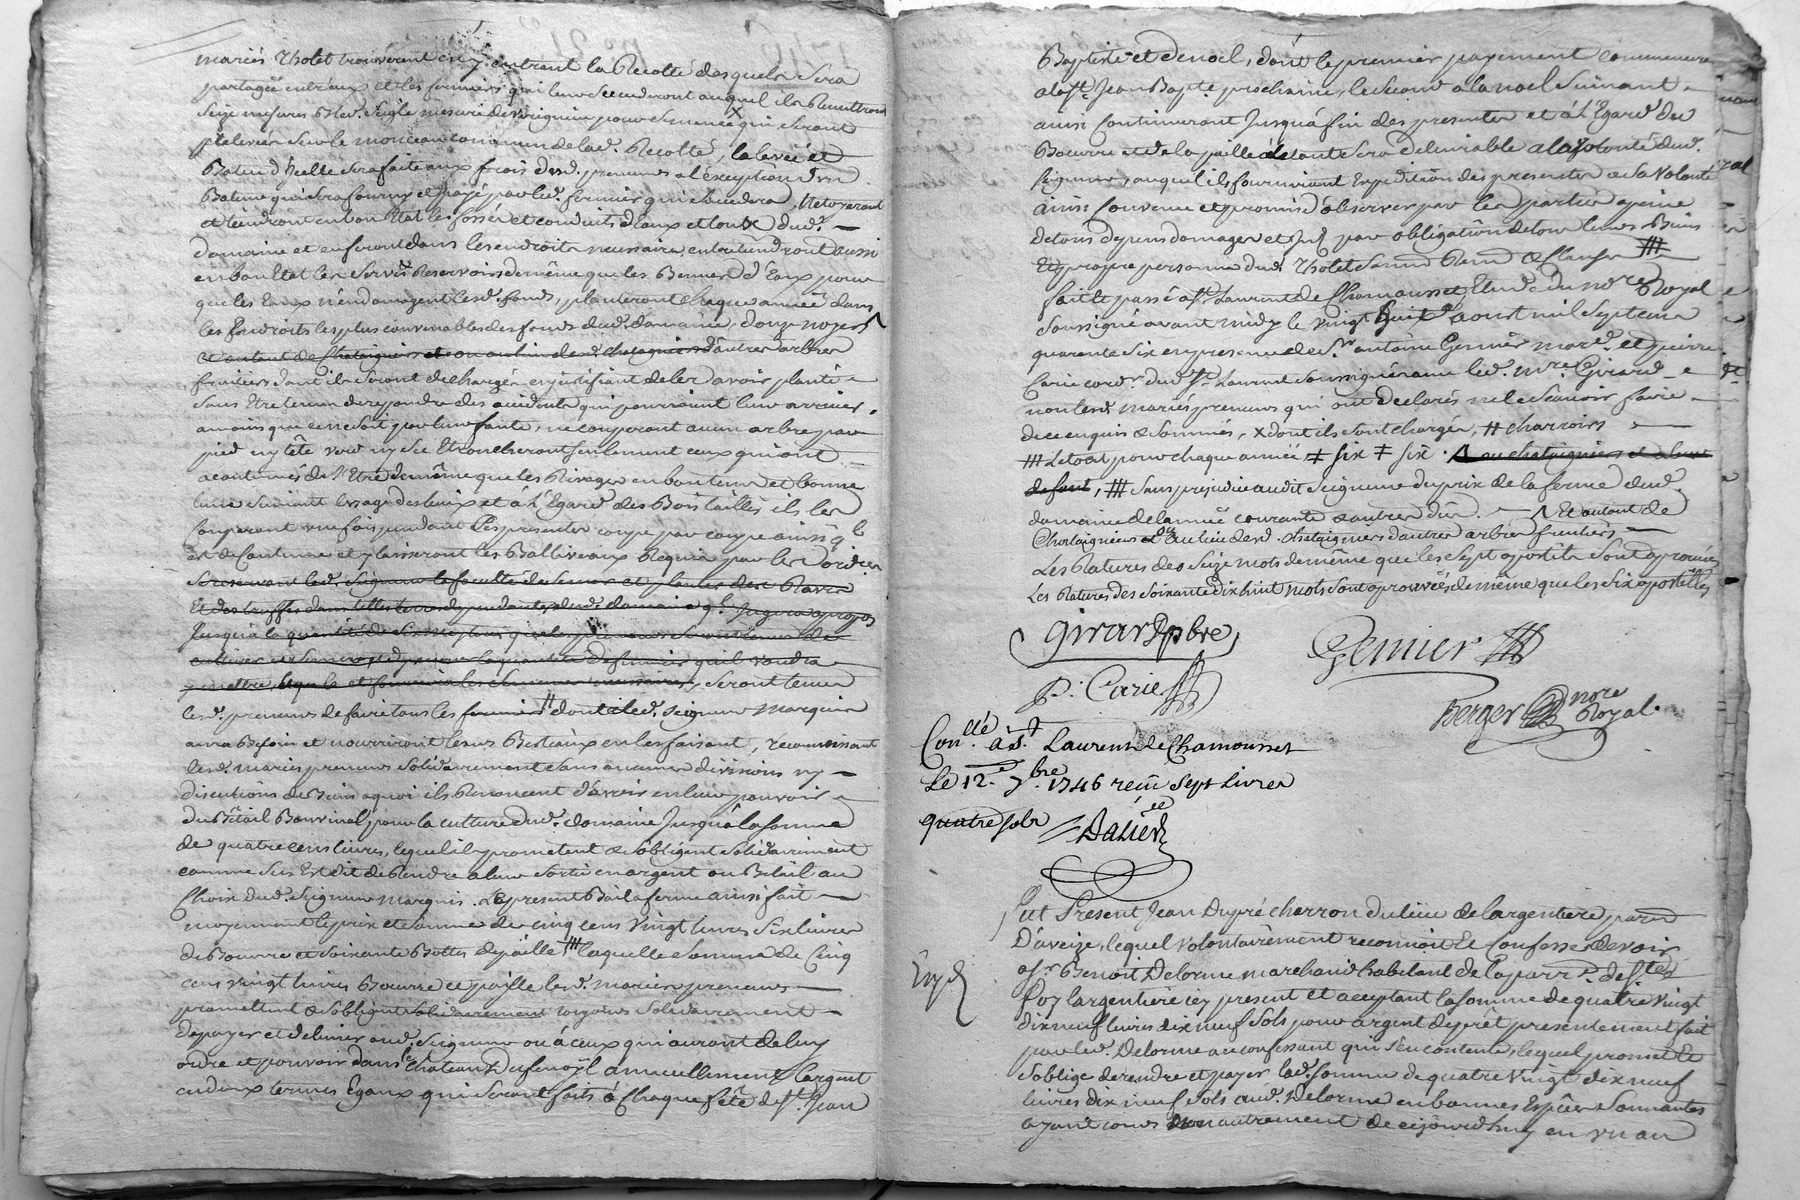 mariés Tholet trouveront en y entrant la Recolte desquels sera
partagée entr'eux et les fermiers qui leur succederont auquel ils Remettront
seize mesures Bled seigle mesure de pour semence qui seront
prelevées sur le monceau commun de lad. Recolte, la levée et
Batture d'icelle sera faite aux frais desd. preneurs a l'exception d'un
Bateur qui sera fourny et payé par led. fermier qui succedera, Netoyeront
et tiendront en bon Etat les fossés et conduits d'eaux et tout dud.
domaine et en feront dans les endroits necessaires, entretiendront aussi
en bon Etat les Serves Reservoirs de même que les Bennes d'Eaux pour
que les Eaux n'endomagent lesd. fonds, planteront chaque année dans
les Endroits les plus convenables des fonds dud. domaine, douze noyers
et autant de Chataigniers et ou au lieu desd. chataigniers d'autres arbres
fruitiers dont ils seront dechargés en justifiant de les avoir planté
sans Etre tenus de repondre des accidents qui pourroient leur arriver,
amoins que ce ne soit par leur faute, ne couperont aucun arbre par
pied ny tête verd ny sec Etroncheront seulement ceux qui ont
acoutumés de l'Etre de même que les Rivages en bon tems et bonne
lune suivant l'usage des lieux et à l'Egard des Bois taillis ils les
Couperont une fois pendant les presentes coupe par coupe ainsi q'l
est de Coutume et y laisseront les Balliveaux Requis par les Ord.ces
Se reservant led. Seigneur la faculté de semer et planter des Raves
Et des truffes dans telles terres dependantes dud. domaine q'l jugera apropos
Jusqu'a la quantité de six que les preneurs seront tenus de
cultiver et la quantité de fumier qu'il voudra
mettre, et fournira les semences necessaires, seront tenus
lesd. preneurs de faire tous les fumiers # dont led. seigneur Marquis
aura Besoin et nourriront leurs Bestiaux en les faisant, reconnoissant
lesd. mariés preneurs solidairement sans aucunes divisions ny
discutions de Biens a quoi ils Renoncent d'avoir en leur pouvoir
du Bêtail Bouvinal pour la culture dud. domaine Jusqu'à la somme
de quatre cens livres, lequel ils prometent et s'obligent solidairement
comme sus Est dit de Rendre a leur sortie en argent ou Bétail au
Choix dud. Seigneur Marquis. Le present Bail a ferme ainsi fait
moyennant le prix et somme de cinq cens vingt livres six livres
de Beurre et soixante Bottes de paille #, laquelle somme de Cinq
cens vingt livres Beurre et paille lesd. mariés preneurs
promettent et s'obligent solidairement toujours solidairement
de payer et delivrer aud. Seigneur ou à ceux qui auront de luy
ordre et pouvoir dans le chateau Dufenoÿl annuellement l'argent
en deux termes Egaux qui seront faits à Chaque fête de St. Jean
Baptiste et de noel, dont le premier payement commencera
a la St. Jean Bapte. prochaine, le second a la noel suivant
ainsi continueront Jusqu'à fin des presentes et à l'Egard du
Beurre et de la paille le tout sera delivrable a la volonté dud.
seigneur, auquel ils fourniront Expedition des presentes a sa volonté
ainsi convenu et promis d'observer par les parties a peine
de tous depens domages et Int. par obligation de tous leurs Biens
Et propre personne dud. Tholet soumn. Renn. & Clauses #
fait et passé a St. Laurent de Chamousset Etude du nore. Royal
soussigné avant midy le vingt huit aoust mil sept cens
quarante six en presence de Sr. antoine Gemier mard. et pierre
Carie cord. dud. St. Laurent soussignés avec led. mre. Girard
non lesd. mariés preneurs qui ont declarés ne le sçavoir faire
de ce enquis & sommés, x dont ils sont chargés, # charrois
# Le tout pour chaque année, ≠ six ≠ six. ou chataigniers et
defaut, # sans prejudice audit seigneur du prix de la ferme dud.
domaine de l'année courante & autres dûs. Λ Et autant de
Chataigniers ou au lieu desd. chataigniers d'autres arbres fruitiers
Les Ratures des seize mots de même que les sept apostils sont aprouvés
Les Ratures des soixante dix huit mots sont aprouvés de même que les six apostilles
Girard pbre
Gemier
P. Carie
Berger nore Royal.
Conllé à St Laurent de Chamousset
Le 12e. 7bre. 1746 reçu sept Livres
quatre sols Dalier
Fut Present Jean Dupré charron du lieu de largentiere parr.
D'aveize, lequel volontairement reconnoit Et Confesse devoir
a Sr. Benoit Delorme marchand habitant de la parr. de Ste.
Foy largentiere icy present et aceptant la somme de quatre vingt
dix neuf livres dix neuf sols pour argent de prêt presentement fait
par led. Delorme au confessant qui s'en contente, lequel promet Et
s'oblige de rendre et payer lad. somme de quatre vingt dix neuf
livres dix neuf sols aud. Delorme en bonnes Espêces sonnantes
ayant cours non autrement de cejourd'huy en un an